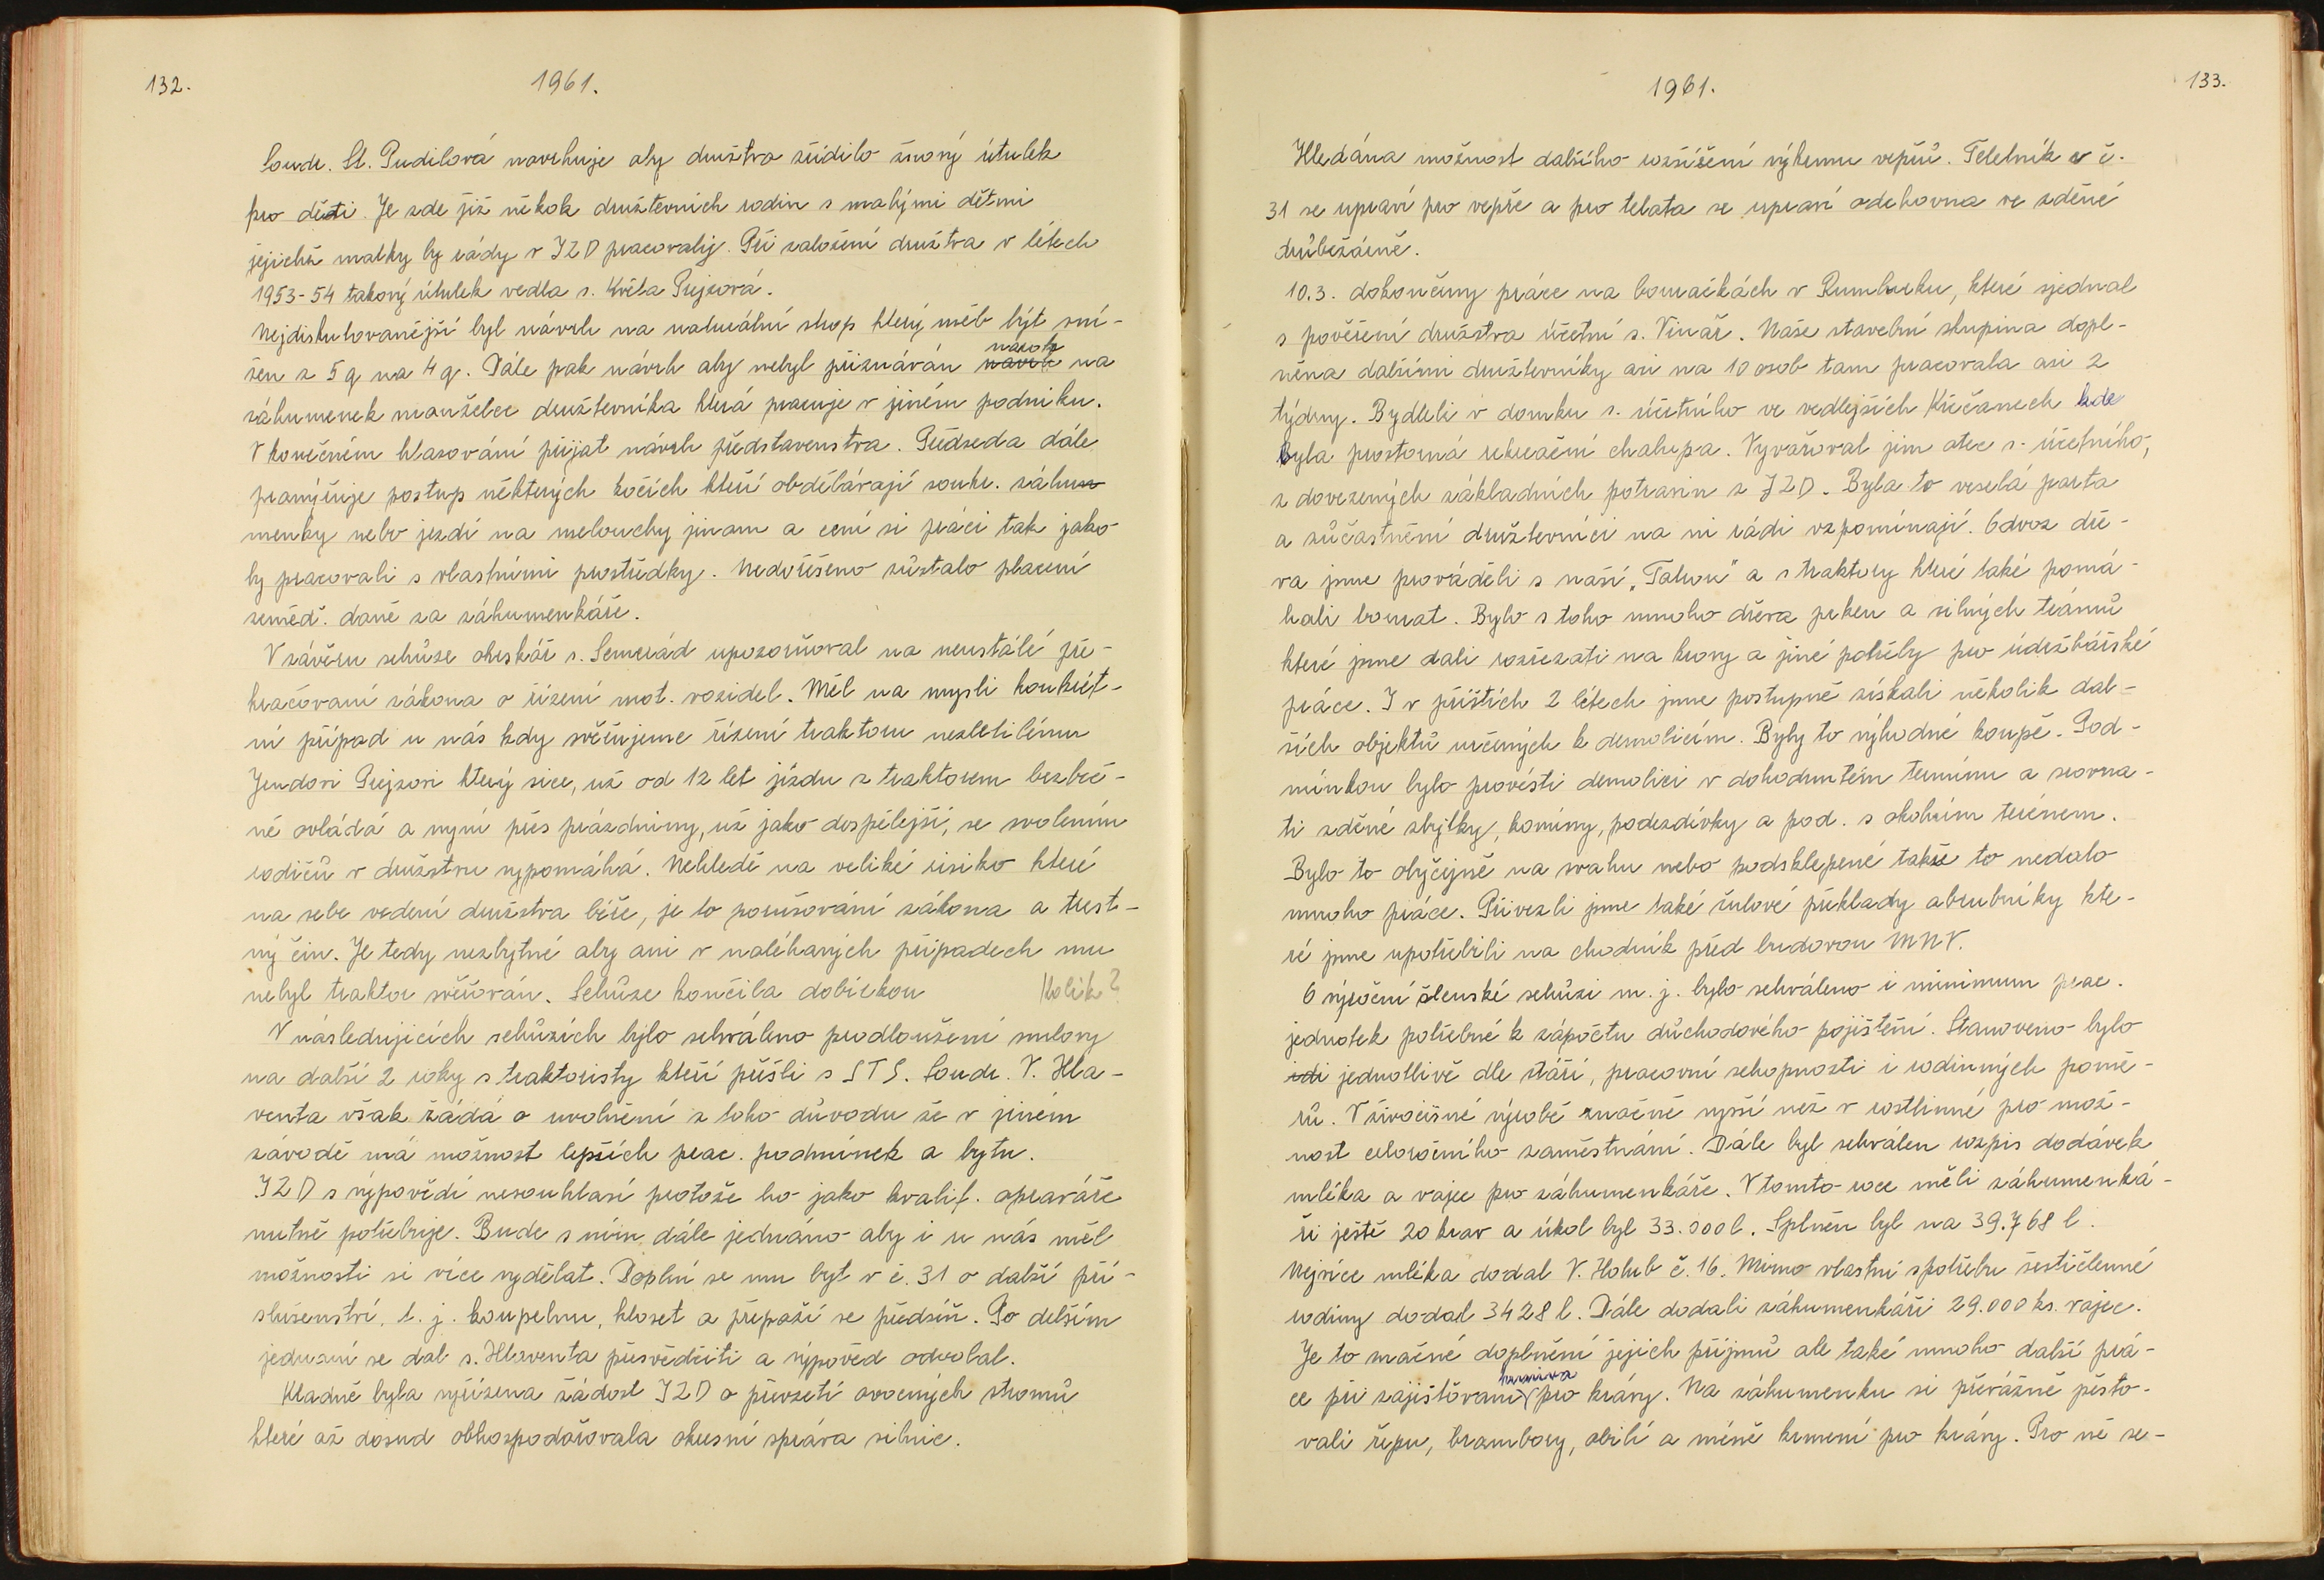 132.
1961.
Soudr. St. Pudilová navrhuje aby družstvo zřídilo žňový útulek
pro děti. Je zde již někok družstevních rodin s malými dětmi
jejichž matky by rády v JZD pracovaly. Při založení družstva v létech
1953-54 takový útulek vedla s. Květa Prejzová.
Nejdiskutovanější byl návrh na naturální strop který měl být sní-
žen z 5 q na 4 q. Dále pak návrh aby nebyl přiznáván nárok na
záhumenek manželce družstevníka která pracuje v jiném podniku.
V konečném hlasování přijat návrh představenstva. Předseda dále
pranýřuje postup některých kočích kteří obdělávají soukr. záhu
menky nebo jezdí na melouchy jinam a cení si práci tak jako
by pracovali s vlastními prostředky. Nedořešeno zůstalo placení
zeměd. daně za záhumenkáře.
V závěru schůze okrskář s. Semerád upozorňoval na neustálé pře-
kračovaní zákona o řízení mot. vozidel. Měl na mysli konkrét-
ní případ u nás kdy svěřujeme řízení traktoru nezletilému
Jendovi Prejzovi který sice, už od 12 let jízdu s traktorem bezbeč-
ně ovládá a nyní přes prázdniny, už jako dospělejší, se svolením
rodičů v družstvu vypomáhá. Nehledě na veliké risiko které
na sebe vedení družstva béře, je to porušování zákona a trest-
ný čin. Je tedy nezbytné aby ani v naléhavých případech mu
nebyl traktor svěřován. Schůze končila dobírkou Kolik?
V následujících schůzích bylo schváleno prodloužení smlovy
na další 2 roky s traktoristy kteří přišli s STS. Soudr. V. Hla-
venta však žádá o uvolnění z toho důvodu že v jiném
závodě má možnost lepších prac. podmínek a bytu.
JZD s výpovědí nesouhlasí protože ho jako kvalif. opraváře
nutně potřebuje. Bude s ním dále jednáno aby i u nás měl
možnosti si více vydělat. Doplní se mu byt v č. 31 o další pří-
slušenství, t. j. koupelnu, kloset a přepaží se předsíň. Po delším
jednaní se dal s. Hlaventa přesvědčiti a výpověd odvolal.
Kladně byla vyřízena žádost JZD o převzetí ovocných stromů
které až dosud obhospodařovala okresní správa silnic.
1961.
133.
Hledána možnost dalšího rozšíření výkrmu vepřů. Teletník v č.
31 se upraví pro vepře a pro telata se upraví odchovna ve zděné
drůbežárně.
10.3. dokončeny práce na bouračkách v Rumburku, které sjednal
s pověření družstva účetní s. Vinař. Naše stavební skupina dopl-
něna dalšími družstevníky asi na 10 osob tam pracovala asi 2
týdny. Bydleli v domku s. účetního ve vedlejších Křečanech kde
byla prostorná rekreační chalupa. Vyvařoval jim otec s. účetního,
z dovezených základních potravin z JZD. Byla to veselá parta
a zůčastnění družstevníci na ni rádi vzpomínají. Odvoz dře-
va jsme prováděli s naší „Tatrou" a s traktory které také pomá-
hali bourat. Bylo s toho mnoho dřeva prken a silných trámů
které jsme dali rozřezati na krovy a jiné potřeby pro údržbářské
práce. I v příštích 2 létech jsme postupně získali několik dal-
ších objektů určených k demolicím. Byly to výhodné koupě. Pod-
mínkou bylo provésti demolici v dohodnutém termínu a srovna-
ti zděné zbytky, komíny, podezdívky a pod. s okolním terénem.
Bylo to obyčejně na svahu nebo podsklepené takže to nedalo
mnoho práce. Přivezli jsme také žulové překlady a brubníky kte-
ré jsme upotřebili na chodník před budovou MNV.
O výroční členské schůzi m. j. bylo schváleno i minimum prac.
jednotek potřebné k zápočtu důchodového pojištění. Stanoveno bylo
jednotlivě dle stáří, pracovní schopnosti i rodinných pomě-
rů. V živočišné výrobě značně vyšší než v rostlinné pro mož-
nost celoročního zaměstnání. Dále byl schválen rozpis dodávek
mléka a vajec pro záhumenkáře. V tomto roce měli záhumenká-
ři ještě 20 krav a úkol byl 33.000 l. Splněn byl na 39.768 l.
Nejvíce mléka dodal V. Holub č. 16. Mimo vlastní spotřebu šestičlenné
rodiny dodal 3428 l. Dále dodali záhumenkáři 29.000 ks. vajec.
Je to značné doplnění jejich příjmů ale také mnoho další prá-
ce při zajišťovaní krmiva pro krávy. Na záhumenku si převážně pěsto-
vali řepu, brambory, obilí a méně krmení pro krávy. Pro ně se-